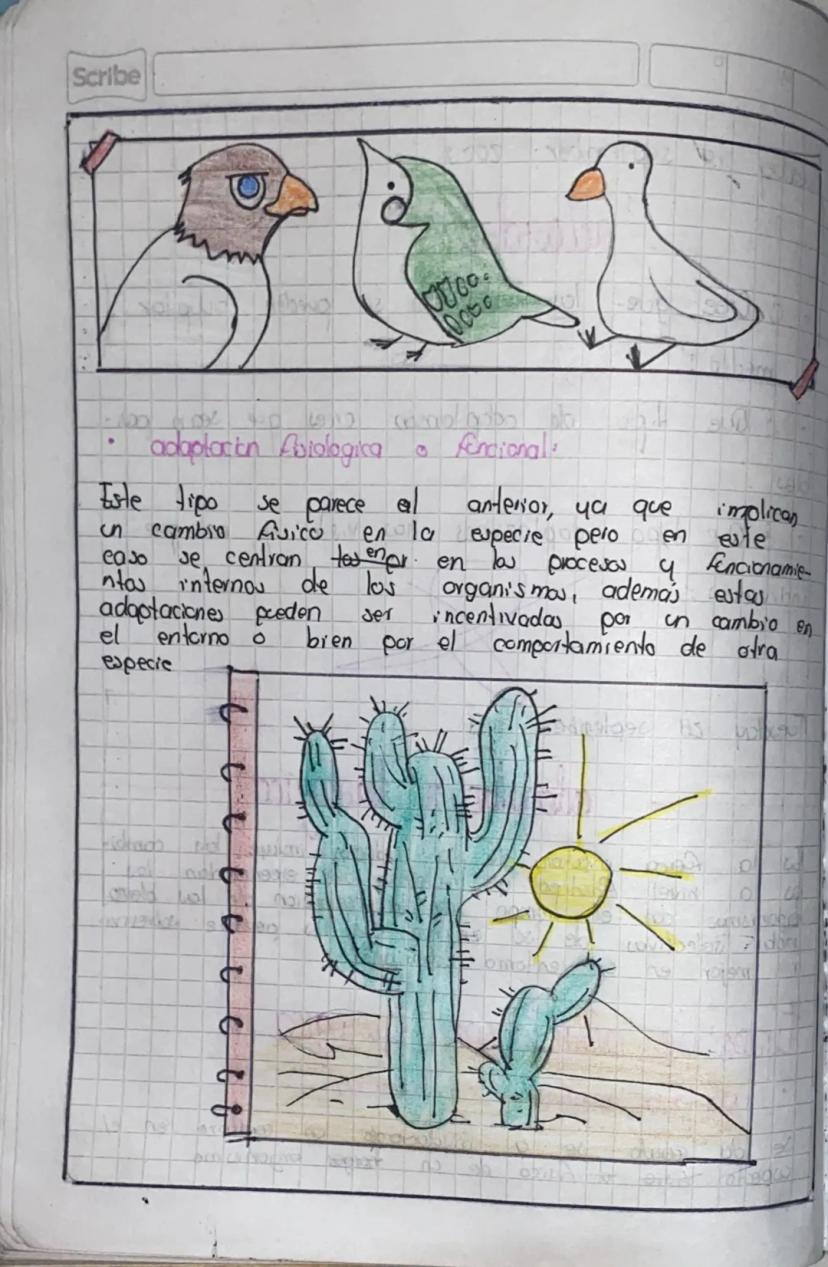 Scribe
• adaptación fisiologica o funcional:
Este tipo se parece al anterior, ya que implican
un cambio fisico en la especie pero en este
caso se centran en los procesos y funcionamie-
ntos internos de los organismos, además estas
adaptaciones pueden ser incentivadas por un cambio en
el entorno o bien por el comportamiento de otra
especie